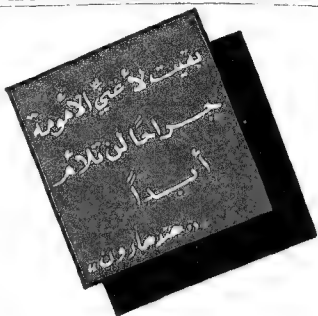 بقيت لأعبئ الأمومة
جراحًا لن تلائم
أبدًا
"هند هارون"